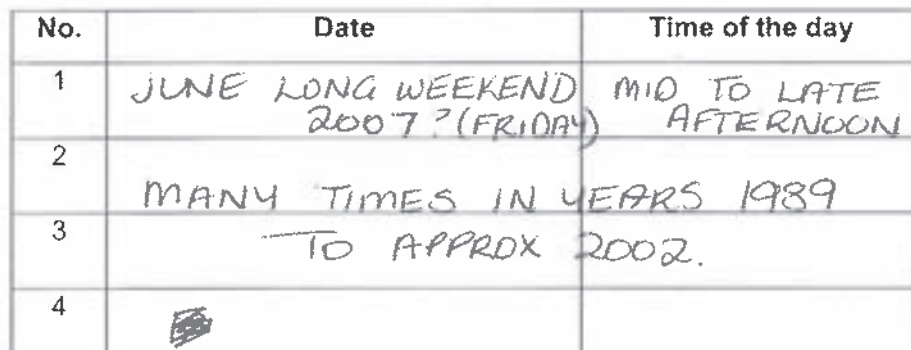 No. Date Time of the day
1 JUNE LONG WEEKEND MID TO LATE
2007? (FRIDAY) AFTERNOON
2
MANY TIMES IN YEARS 1989
3 TO APPROX 2002.
4